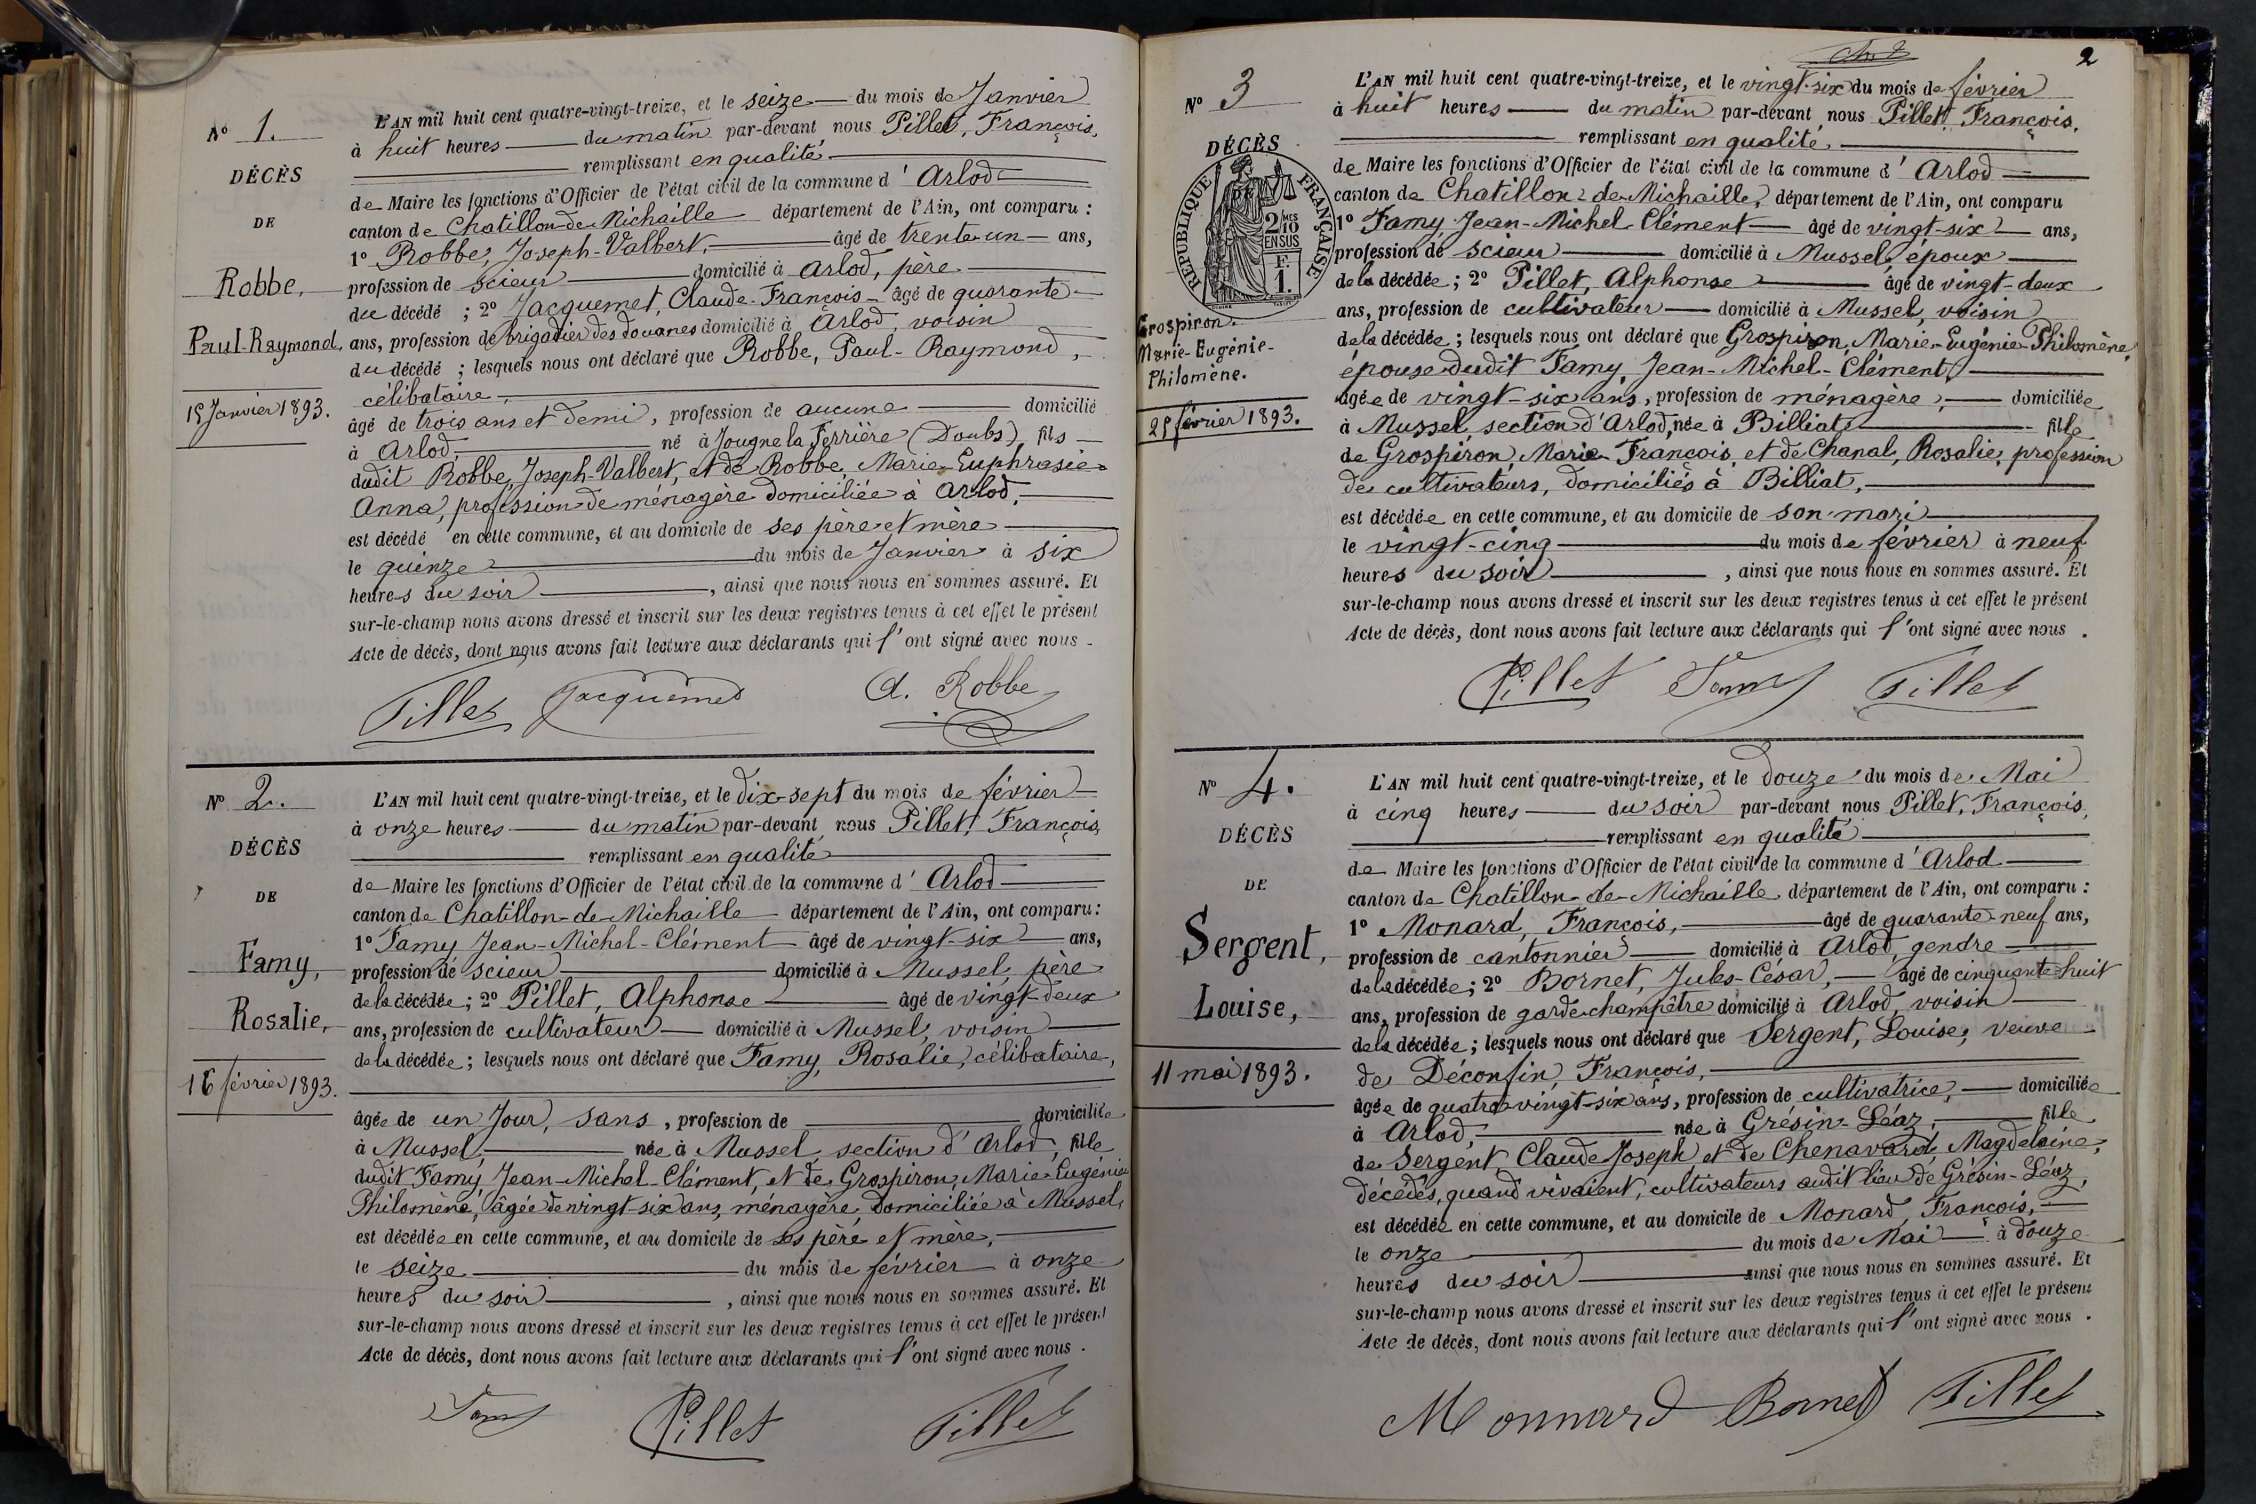 N° 1.
DÉCÈS
DE
Robbe,
Paul-Raymond,
15 Janvier 1893.
L'AN mil huit cent quatre-vingt-treize, et le seize du mois de Janvier
à huit heures du matin par-devant nous Pillet, François,
remplissant en qualité
de Maire les fonctions d'Officier de l'état civil de la commune d'Arlod
canton de Chatillon-de-Michaille département de l'Ain, ont comparu :
1° Robbe, Joseph-Valbert, âgé de trente-un ans,
profession de scieur domicilié à Arlod, père
du décédé ; 2° Jacquemet, Claude-François âgé de quarante
ans, profession de brigadier des douanes domicilié à Arlod, voisin
du décédé ; lesquels nous ont déclaré que Robbe, Paul-Raymond,
célibataire,
âgé de trois ans et demi, profession de aucune domicilié
à Arlod, né à Jougne la Ferrière (Doubs), fils
dudit Robbe, Joseph-Valbert, et de Robbe Marie-Euphrasie-
Anna, profession de ménagère domiciliée à Arlod,
est décédé en cette commune, et au domicile de ses père et mère
le quinze du mois de Janvier à six
heures du soir, ainsi que nous nous en sommes assuré. Et
sur-le-champ nous avons dressé et inscrit sur les deux registres tenus à cet effet le présent
Acte de décès, dont nous avons fait lecture aux déclarants qui l'ont signé avec nous.
Pillet Jacquemet A. Robbe
N° 2.
DÉCÈS
DE
Famy,
Rosalie,
16 février 1893.
L'AN mil huit cent quatre-vingt-treize, et le dix-sept du mois de février
à onze heures du matin par-devant nous Pillet, François,
remplissant en qualité
de Maire les fonctions d'Officier de l'état civil de la commune d'Arlod
canton de Chatillon-de-Michaille département de l'Ain, ont comparu :
1° Famy Jean-Michel-Clément âgé de vingt-six ans,
profession de scieur domicilié à Mussel, père
de la décédée ; 2° Pillet, Alphonse âgé de vingt-deux
ans, profession de cultivateur domicilié à Mussel, voisin
de la décédée ; lesquels nous ont déclaré que Famy, Rosalie, célibataire,
âgée de un Jour, sans, profession de domiciliée
à Mussel, née à Mussel, section d'Arlod, fille
dudit Famy Jean-Michel-Clément, et de Grospiron, Marie-Eugénie
Philomène, âgée de vingt-six ans, ménagère, domiciliée à Mussel,
est décédée en cette commune, et au domicile de ses père et mère,
le seize du mois de février à onze
heures du soir, ainsi que nous nous en sommes assuré. Et
sur-le-champ nous avons dressé et inscrit sur les deux registres tenus à cet effet le présent
Acte de décès, dont nous avons fait lecture aux déclarants qui l'ont signé avec nous.
Famy Pillet Pillet
2
N° 3
DÉCÈS
RÉPUBLIQUE FRANÇAISE
2 MES
10
EN SUS
F.
1.
Grospiron.
Marie-Eugénie-
Philomène.
25 février 1893.
L'AN mil huit cent quatre-vingt-treize, et le vingt-six du mois de février
à huit heures du matin par-devant nous Pillet, François,
remplissant en qualité,
de Maire les fonctions d'Officier de l'état civil de la commune d'Arlod
canton de Chatillon-de-Michaille, département de l'Ain, ont comparu
1° Famy Jean-Michel-Clément âgé de vingt-six ans,
profession de scieur domicilié à Mussel, époux
de la décédée ; 2° Pillet, Alphonse âgé de vingt-deux
ans, profession de cultivateur domicilié à Mussel, voisin
de la décédée ; lesquels nous ont déclaré que Grospiron, Marie-Eugénie-Philomène,
épouse dudit Famy, Jean-Michel-Clément,
âgée de vingt-six ans, profession de ménagère, domiciliée
à Mussel, section d'Arlod, née à Billiat, fille
de Grospiron, Marie-François, et de Chanal, Rosalie, profession
de cultivateurs, domiciliés à Billiat,
est décédée en cette commune, et au domicile de son mari
le vingt-cinq du mois de février à neuf
heures du soir, ainsi que nous nous en sommes assuré. Et
sur-le-champ nous avons dressé et inscrit sur les deux registres tenus à cet effet le présent
Acte de décès, dont nous avons fait lecture aux déclarants qui l'ont signé avec nous.
Pillet Famy Pillet
N° 4.
DÉCÈS
DE
Sergent,
Louise,
11 mai 1893.
L'AN mil huit cent quatre-vingt-treize, et le douze du mois de Mai
à cinq heures du soir par-devant nous Pillet, François,
remplissant en qualité
de Maire les fonctions d'Officier de l'état civil de la commune d'Arlod
canton de Chatillon-de-Michaille département de l'Ain, ont comparu :
1° Monard, François, âgé de quarante-neuf ans,
profession de cantonnier domicilié à Arlod, gendre
de la décédée ; 2° Bornet, Jules-César, âgé de cinquante-huit
ans, profession de garde-champêtre domicilié à Arlod, voisin
de la décédée ; lesquels nous ont déclaré que Sergent, Louise, veuve
de Déconfin, François,
âgée de quatre-vingt-six ans, profession de cultivatrice, domiciliée
à Arlod, née à Grésin-Léaz, fille
de Sergent, Claude Joseph et de Chenavard, Magdelaine,
décédés, quand vivaient, cultivateurs audit lieu de Grésin-Léaz,
est décédée en cette commune, et au domicile de Monard, François,
le onze du mois de Mai à douze
heures du soir ainsi que nous nous en sommes assuré. Et
sur-le-champ nous avons dressé et inscrit sur les deux registres tenus à cet effet le présent
Acte de décès, dont nous avons fait lecture aux déclarants qui l'ont signé avec nous.
Monnard Bornet Pillet